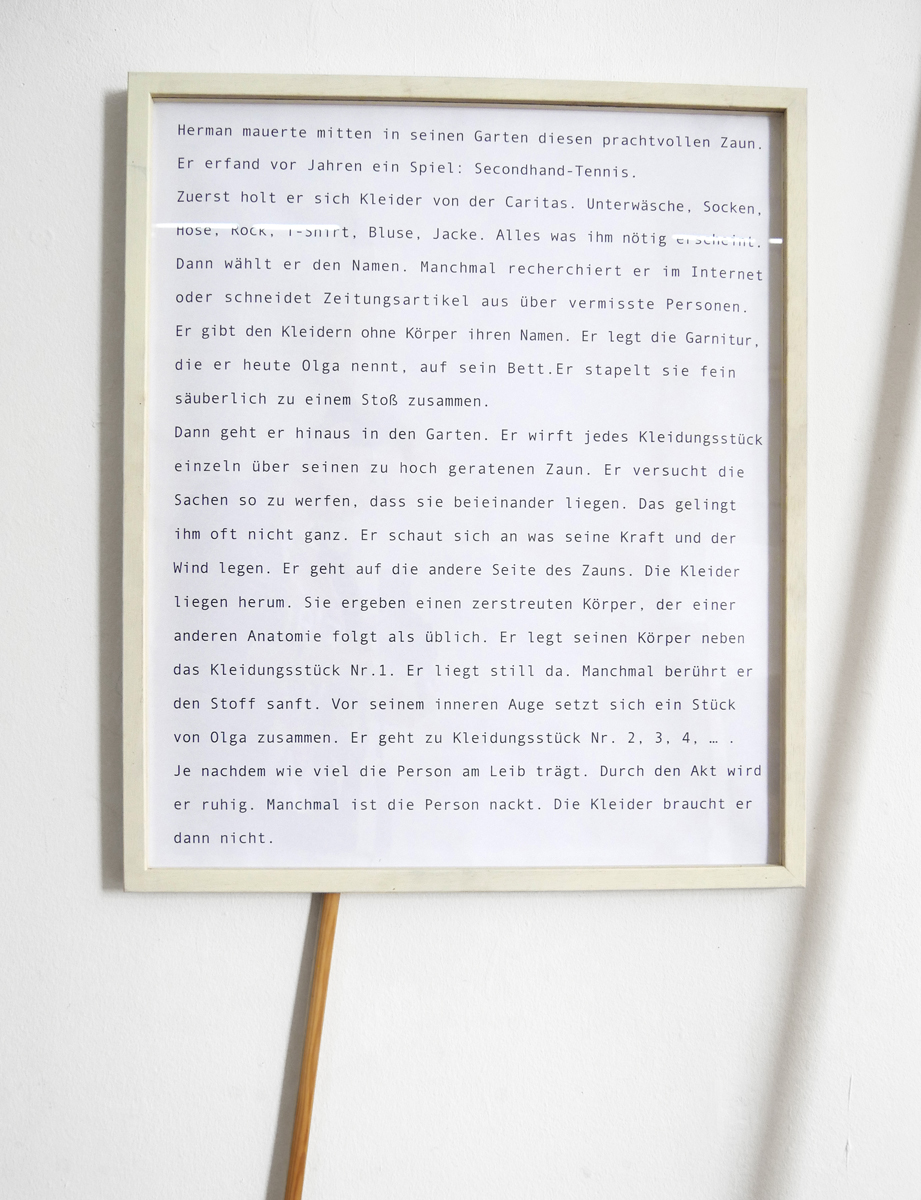 Herman mauerte mitten in seinen Garten diesen prachtvollen Zaun.
Er erfand vor Jahren ein Spiel: Secondhand-Tennis.
Zuerst holt er sich Kleider von der Caritas. Unterwäsche, Socken,
Hose, Rock, T-Shirt, Bluse, Jacke. Alles was ihm nötig erscheint.
Dann wählt er den Namen. Manchmal recherchiert er im Internet
oder schneidet Zeitungsartikel aus über vermisste Personen.
Er gibt den Kleidern ohne Körper ihren Namen. Er legt die Garnitur,
die er heute Olga nennt, auf sein Bett.Er stapelt sie fein
säuberlich zu einem Stoß zusammen.
Dann geht er hinaus in den Garten. Er wirft jedes Kleidungsstück
einzeln über seinen zu hoch geratenen Zaun. Er versucht die
Sachen so zu werfen, dass sie beieinander liegen. Das gelingt
ihm oft nicht ganz. Er schaut sich an was seine Kraft und der
Wind legen. Er geht auf die andere Seite des Zauns. Die Kleider
liegen herum. Sie ergeben einen zerstreuten Körper, der einer
anderen Anatomie folgt als üblich. Er legt seinen Körper neben
das Kleidungsstück Nr.1. Er liegt still da. Manchmal berührt er
den Stoff sanft. Vor seinem inneren Auge setzt sich ein Stück
von Olga zusammen. Er geht zu Kleidungsstück Nr. 2, 3, 4, … .
Je nachdem wie viel die Person am Leib trägt. Durch den Akt wird
er ruhig. Manchmal ist die Person nackt. Die Kleider braucht er
dann nicht.